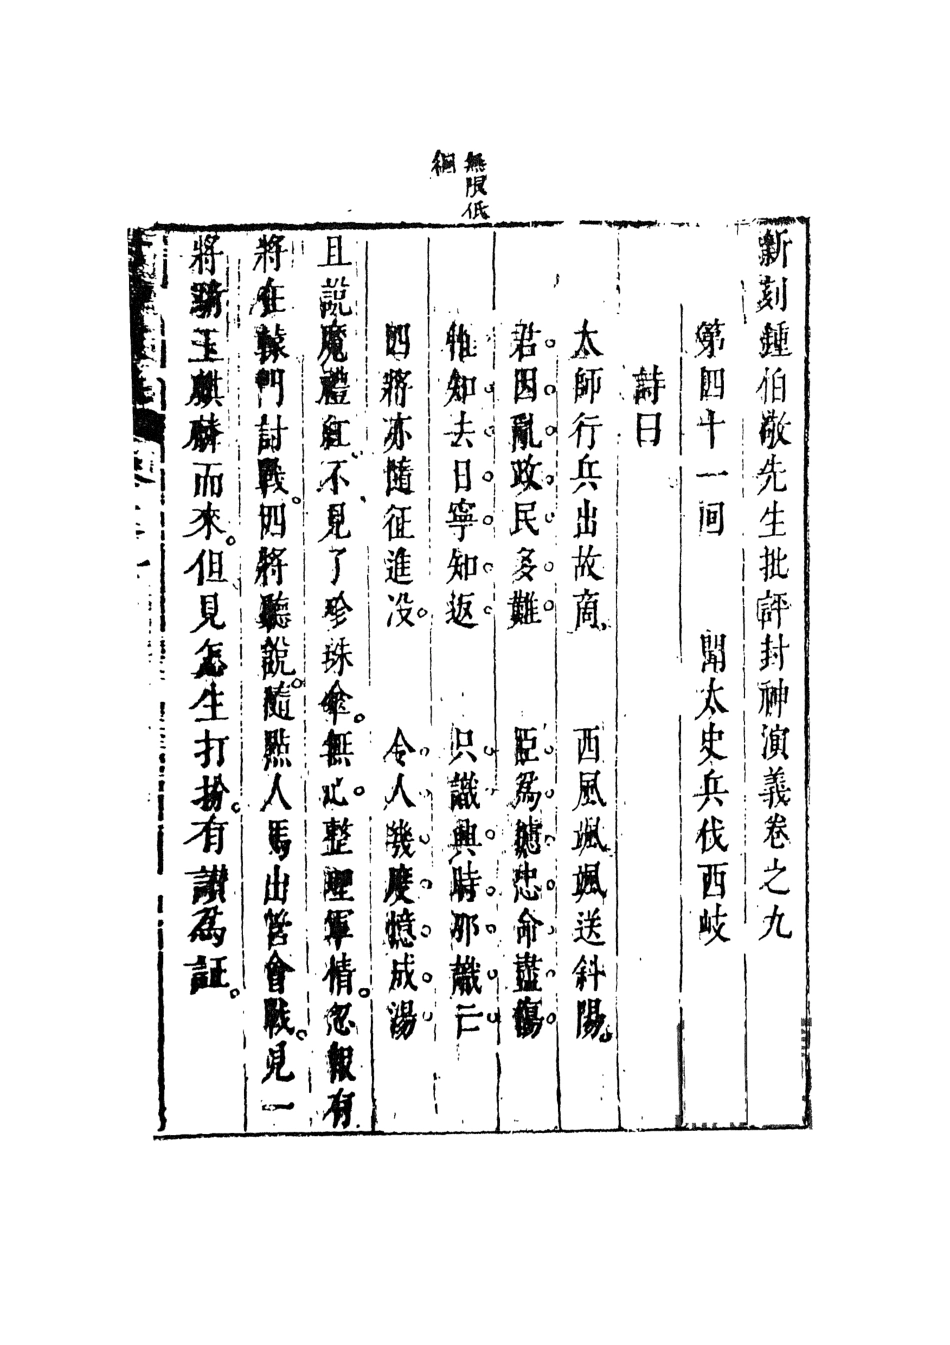 新刻鍾伯敬先生批評封神演義卷之九
第四十一回　聞太史兵伐西岐
詩曰
太師行兵出故商、西風颯颯送斜陽。
君因亂政民多難　臣爲攄忠命盡傷
惟知去日寧知返　只識興時那識亡
四將亦隨征進没　令人幾度憶成湯
無限低
徊
且說魔禮紅不見了珍珠傘。無心整理軍情。忽報有
將在轅門討戰。四將聽說。隨點人馬出營會戰。見一
將騎玉麒麟而來。但見怎生打扮。有讃爲証。